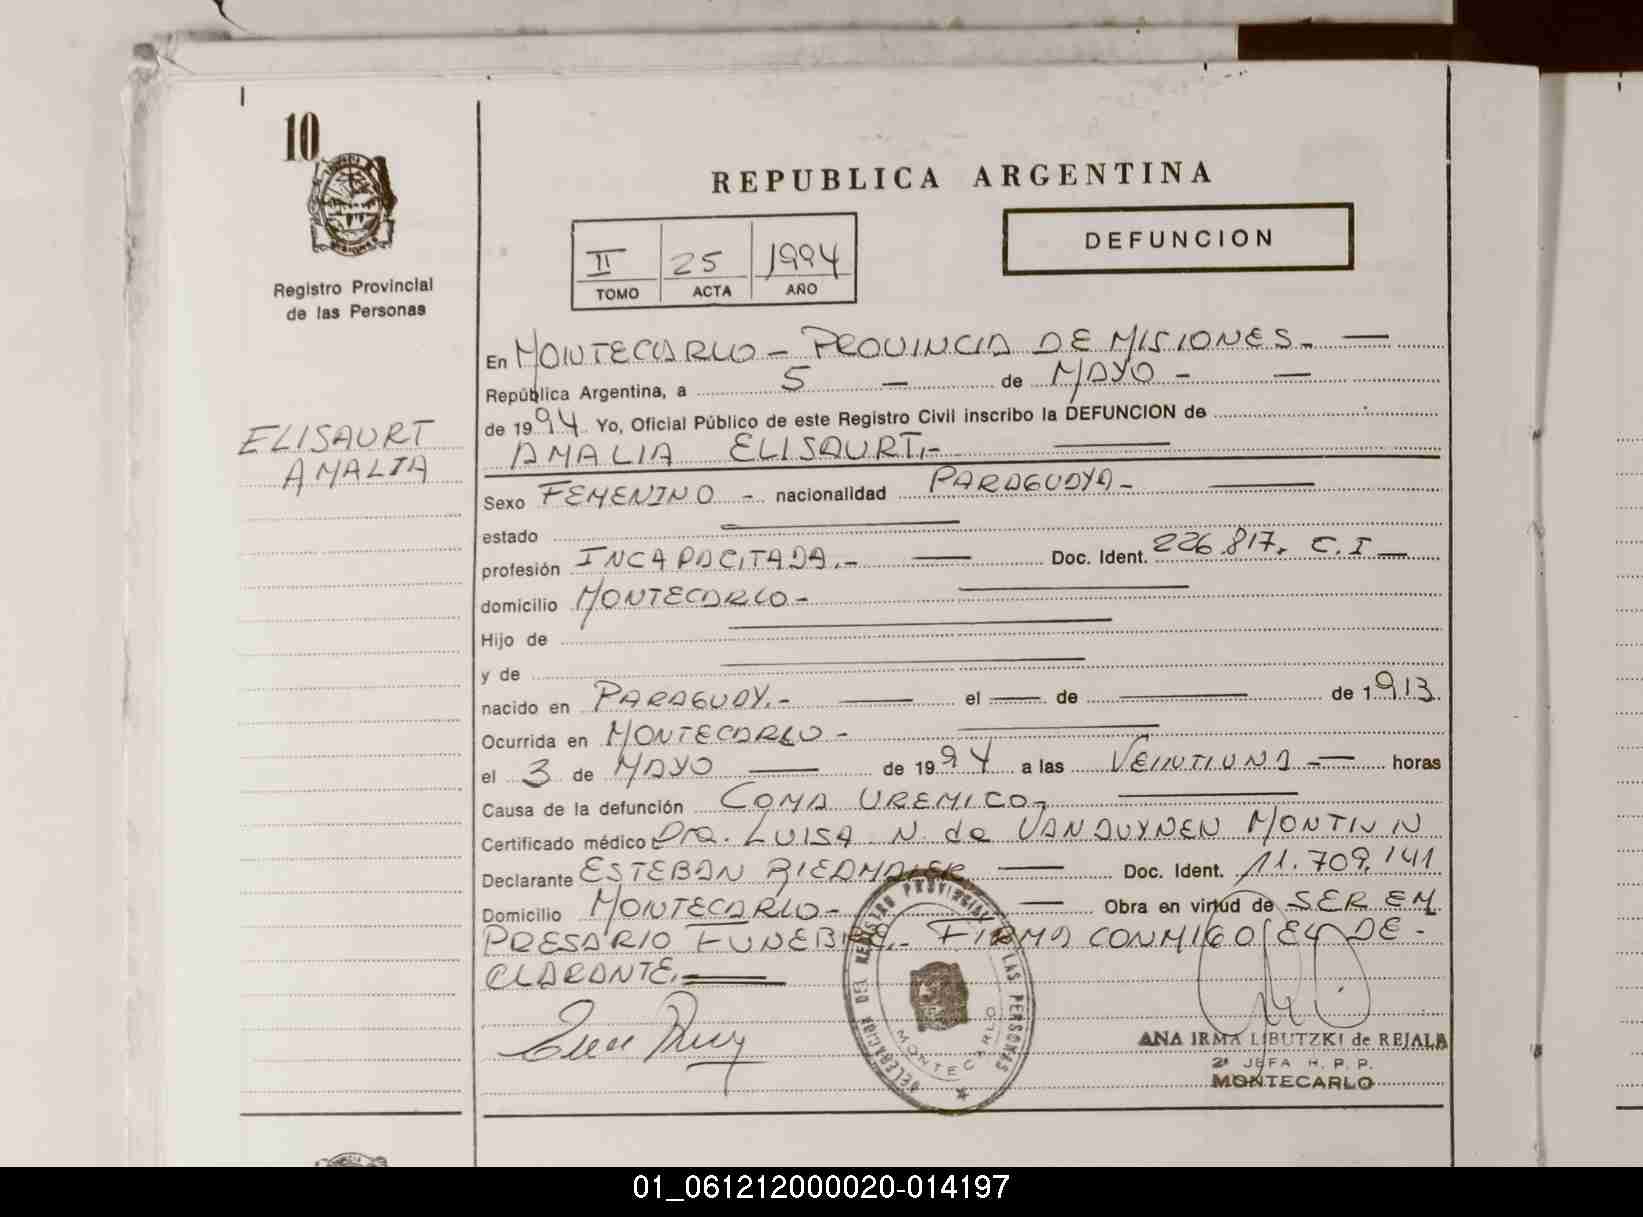 10
Registro Provincial
de las Personas
ELISAURT
AMALIA
REPUBLICA ARGENTINA
II 25 1994
TOMO ACTA AÑO
DEFUNCION
En MONTECARLO - PROVINCIA DE MISIONES. —
República Argentina, a 5 — de MAYO - —
de 1994 Yo, Oficial Público de este Registro Civil inscribo la DEFUNCION de
AMALIA ELISAURT.- —
Sexo FEMENINO - nacionalidad PARAGUAYA - —
estado —
profesión INCAPACITADA.- — Doc. Ident. 226.817. C.I —
domicilio MONTECARLO - —
Hijo de —
y de —
nacido en PARAGUAY.- — el — de — de 1913.
Ocurrida en MONTECARLO - —
el 3 de MAYO — de 1994 a las VEINTIUNA - — horas
Causa de la defunción COMA UREMICO - —
Certificado médico Dra. LUISA N. de VANDUYNEN MONTIVIN
Declarante ESTEBAN BIEDMAIER — Doc. Ident. 11.709.141
Domicilio MONTECARLO - — Obra en virtud de SER EM
PRESARIO FUNEBRE.- FIRMA CONMIGO EL DE -
CLARANTE. —
DELEGACION DEL REGISTRO PROVINCIAL DE LAS PERSONAS
MONTECARLO
ANA IRMA LIBUTZKI de REJALA
2ª JEFA R. P. P.
MONTECARLO
01_061212000020-014197